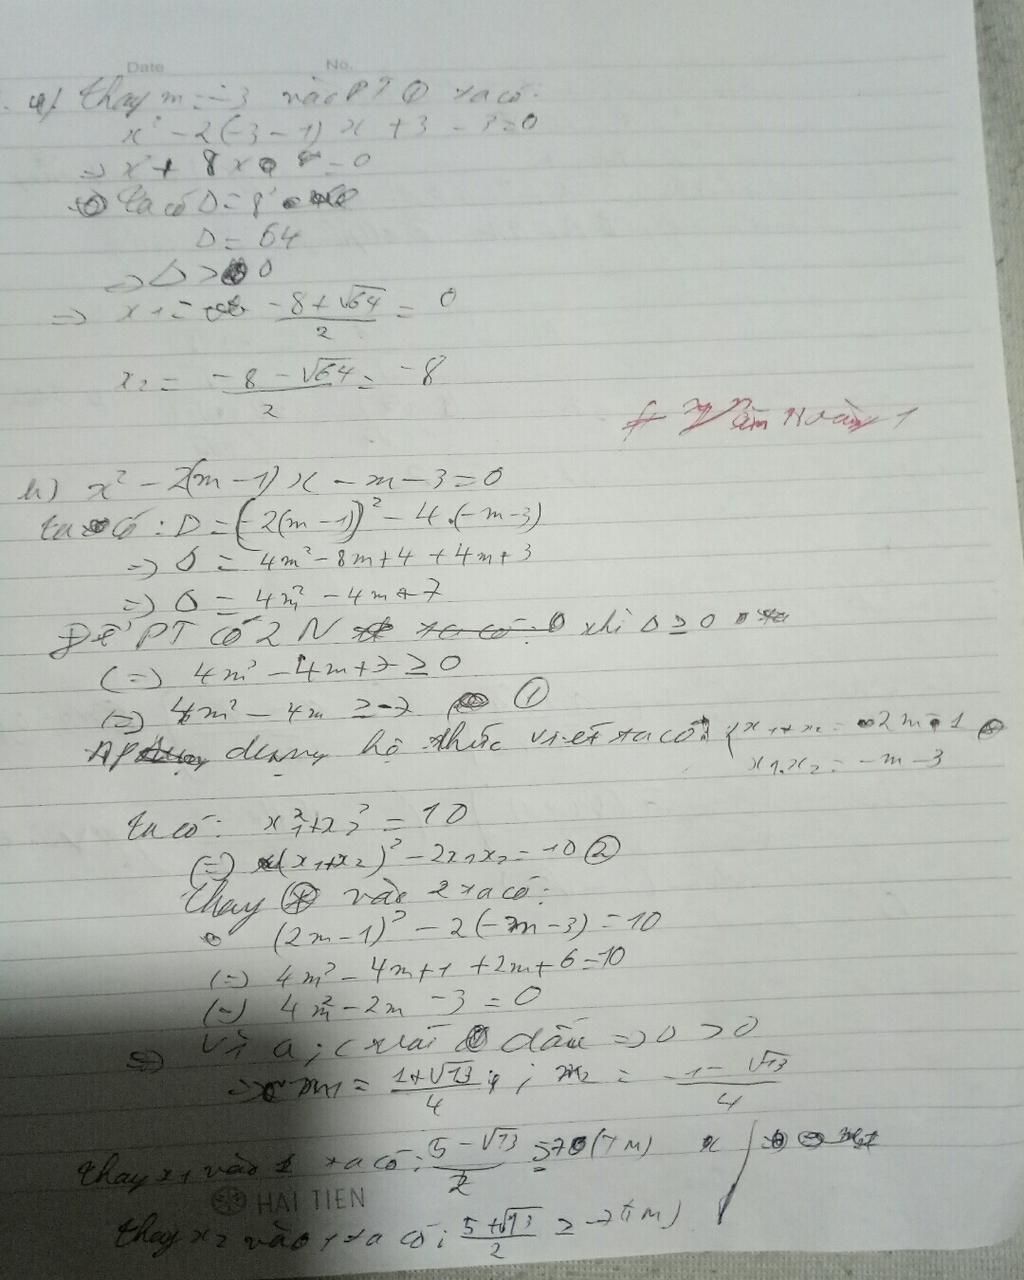 Date No.
a) thay m = -3 vào PT ① ta có:
x² - 2(-3 - 1)x + 3 - 3 = 0
=> x² + 8x = 0
ta có Δ = 8²
Δ = 64
=> Δ > 0
=> x1 = -8 + √64 / 2 = 0
x2 = -8 - √64 / 2 = -8
b) x² - 2(m - 1)x - m - 3 = 0
ta có: Δ = (-2(m - 1))² - 4.(-m - 3)
=> Δ = 4m² - 8m + 4 + 4m + 3
=> Δ = 4m² - 4m + 7
Để PT có 2 N khi Δ ≥ 0
(=) 4m² - 4m + 7 ≥ 0
(=) 4m² - 4m ≥ -7 ①
AP dụng hệ thức viét ta có: { x1 + x2 = 2m - 1
x1.x2 = -m - 3
ta có: x1² + x2² = 10
(=) (x1 + x2)² - 2x1x2 = 10 ②
thay vào 2 ta có:
(2m - 1)² - 2(-m - 3) = 10
(=) 4m² - 4m + 1 + 2m + 6 = 10
(=) 4m² - 2m - 3 = 0
Vì a; c trái dấu => Δ > 0
=> m1 = 1 + √13 / 4 ; m2 = 1 - √13 / 4
thay x1 vào 1 ta có: 5 - √13 / 2 ≥ -7 (TM)
HAI TIEN
thay x2 vào 1 ta có: 5 + √13 / 2 ≥ -7 (TM)